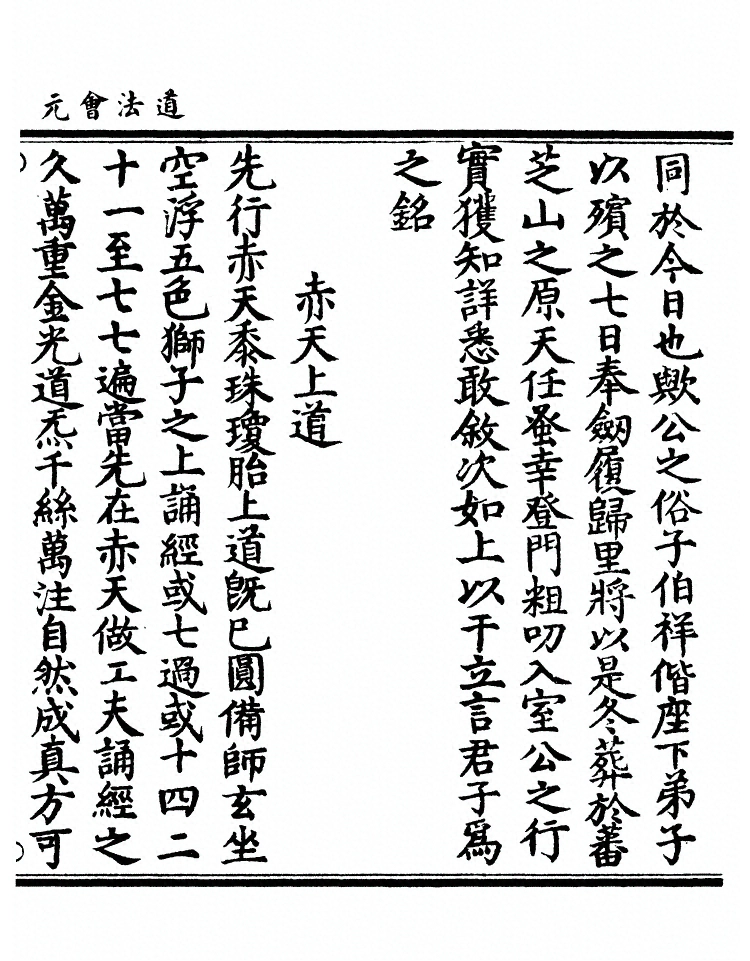 道法會元
同於今日也歟公之俗子伯祥偕座下弟子
以殯之七日奉劒履歸里將以是冬葬於蕃
芝山之原天任蚤幸登門粗叨入室公之行
實獲知詳悉敢敘次如上以干立言君子爲
之銘
赤天上道
先行赤天黍珠瓊胎上道旣已圓備師玄坐
空浮五色獅子之上誦經或七過或十四二
十一至七七遍當先在赤天做工夫誦經之
久萬重金光道炁千絲萬注自然成真方可